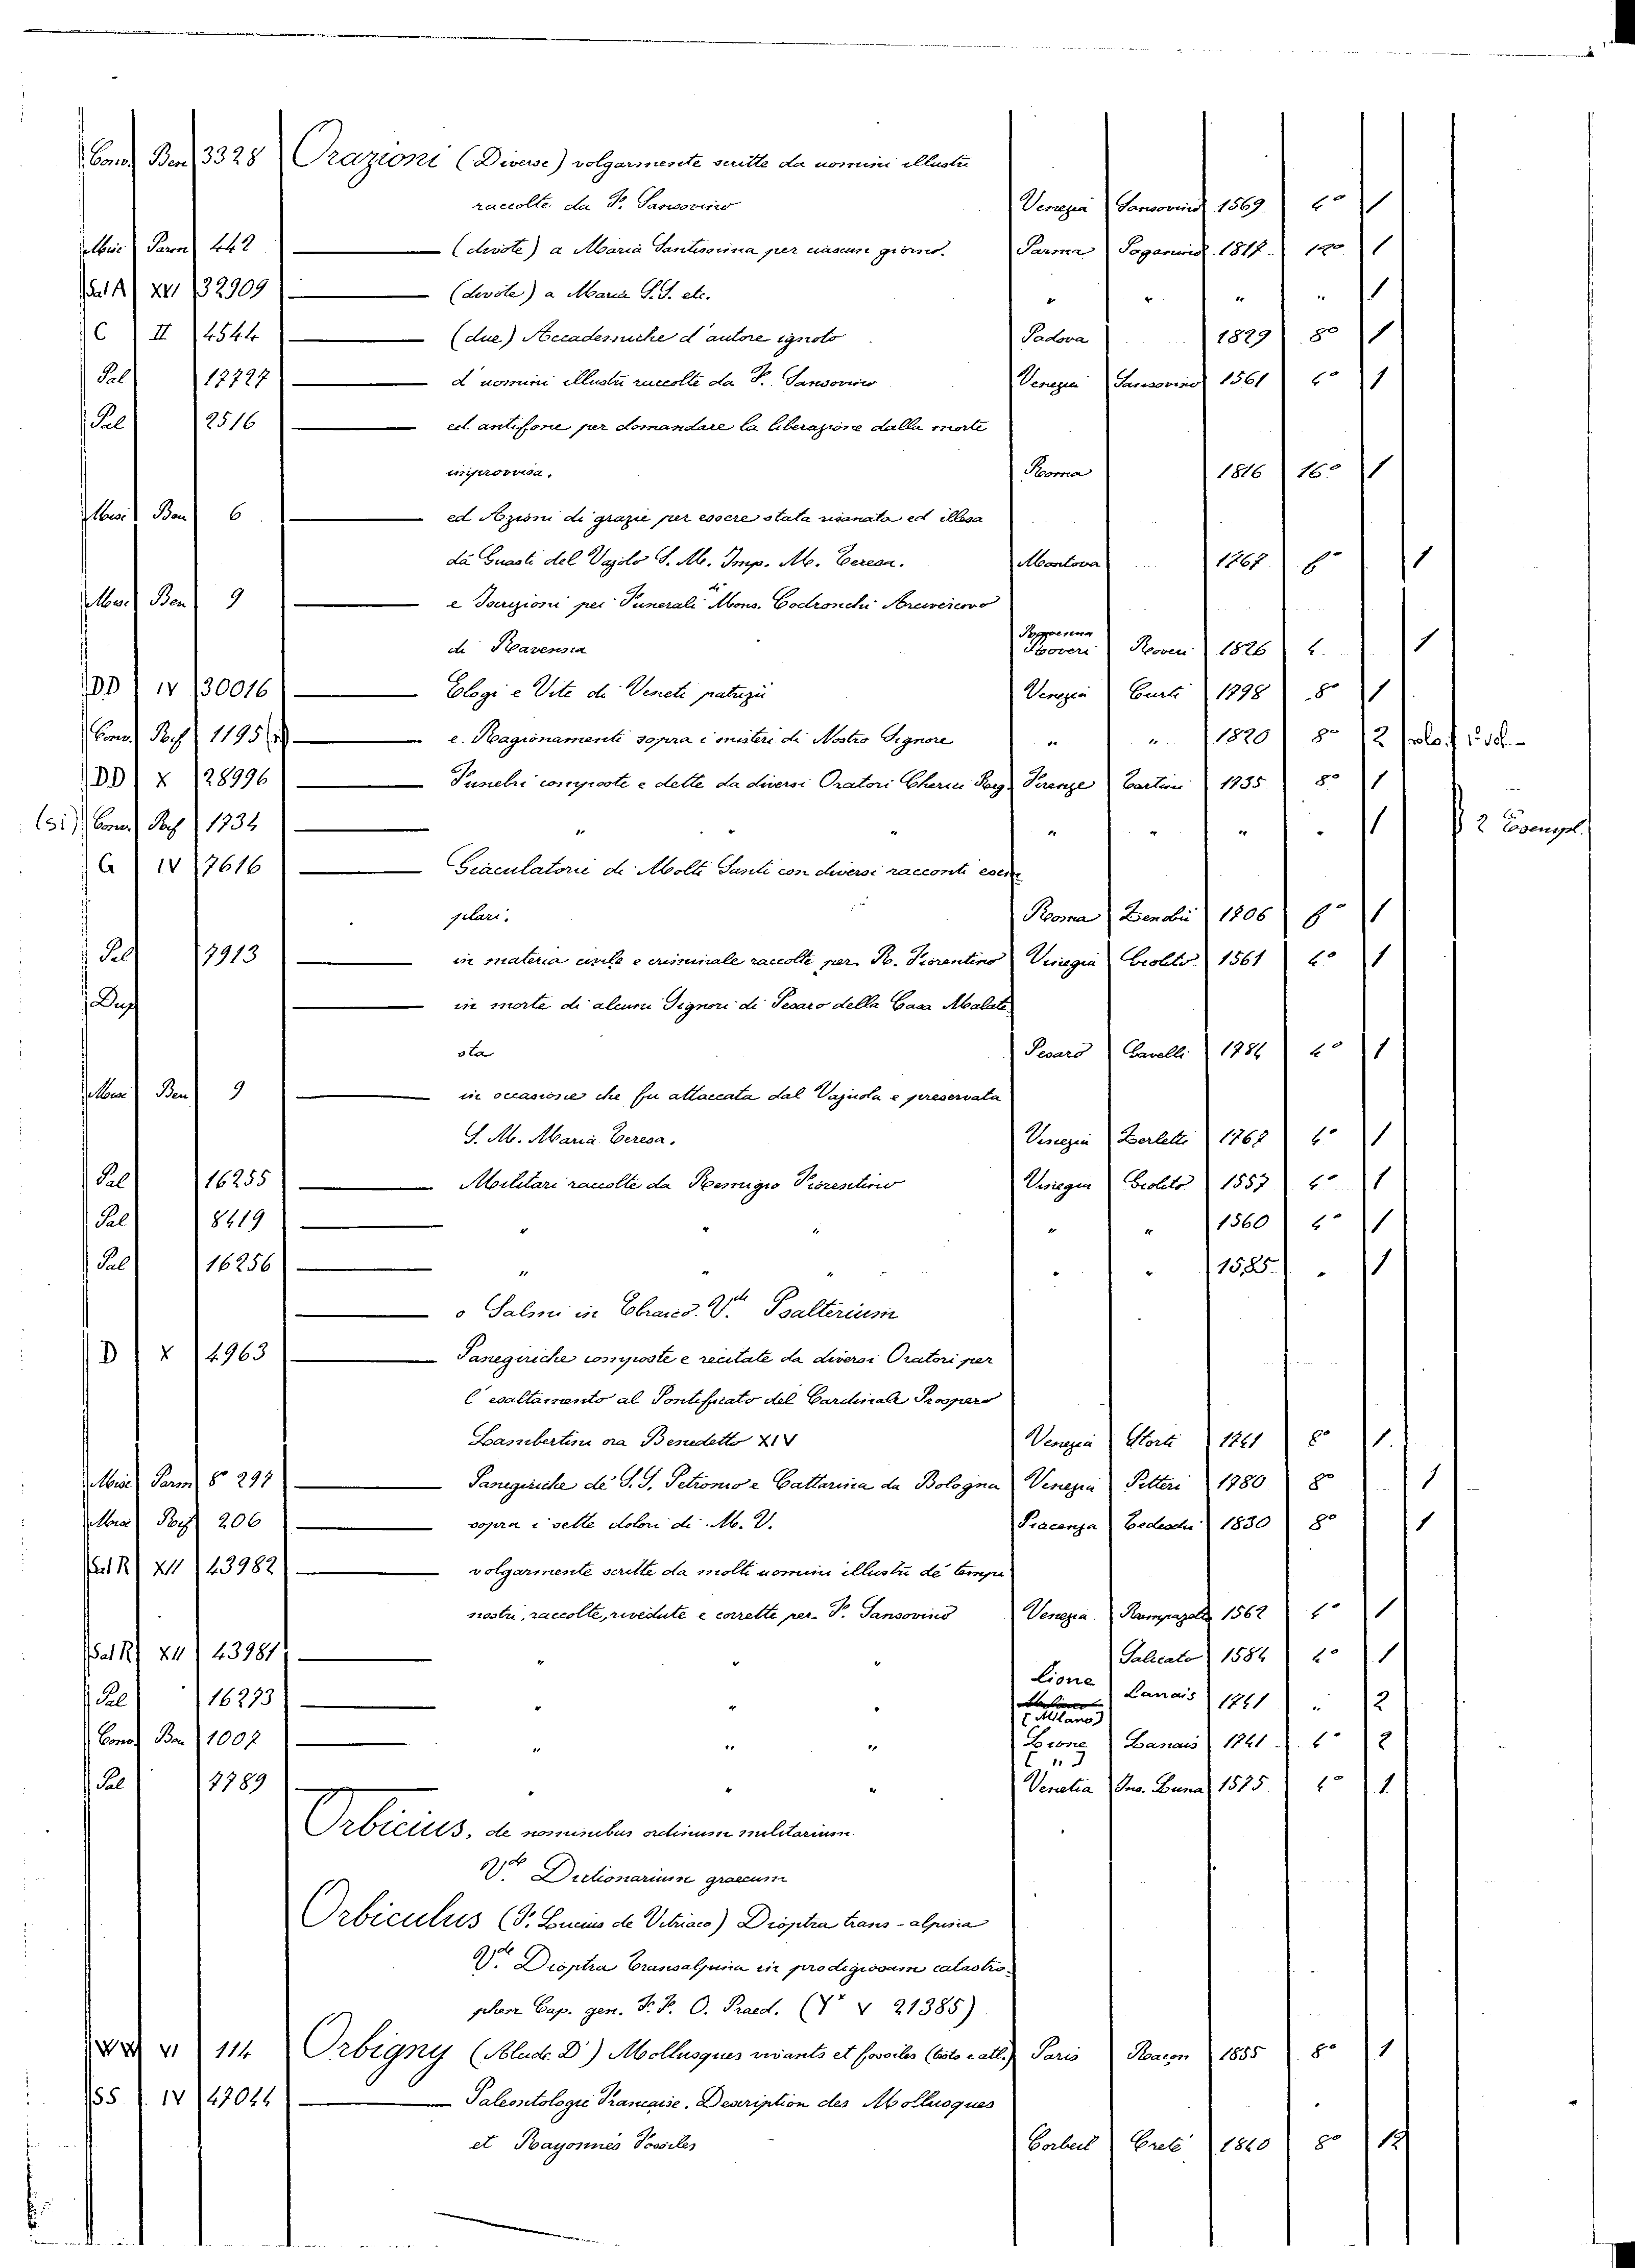 Conv. Ben 3328 Orazioni (Diverse) volgarmente scritte da uomini illustri
raccolte da F. Sansovino Venezia Sansovino 1569. 4º 1
Misc Parm 442 — (devote) a Maria Santissima per ciascun giorno. Parma Paganino. 1817 1
Sal A XVI 32909 — (devote) a Maria S.S. etc. " " " " 1
C II 4544 — (due) Accademiche d'autore ignoto Padova 1829 8º 1
Pal 12727 — d'uomini illustri raccolte da F. Sansovino Venezia Sansovino 1561 4º 1
Pal 2516 — ed antifone per domandare la liberazione dalla morte
improvvisa. Roma 1816 16º 1
Misc Ben 6 — ed Azioni di grazie per essere stata risanata ed illesa
da Guasti del Vajolo S. M. Imp. M. Teresa. Mantova 1767. 1
Misc Ben 9 — e Iscrizioni pei Funerali di Mons. Codronchi Arcivescovo
di Ravenna Ravenna Roveri Roveri 1826 4. 1
DD IV 30016 — Elogi e Vite di Veneti patrizii Venezia Curti 1798 8º 1
Conv. Rof 1195 — e Ragionamenti sopra i misteri di Nostro Signore " " 1820 8º 2
DD X 28996 — Funebri composte e dette da diversi Oratori Cherici Reg. Firenze Cartini 1735 8º 1
(si) Conv Rof 1734 — " " " " " " 1 2 Esempl.
G IV 7616 — Giaculatorie di Molti Santi con diversi racconti esem
plari. Roma Zenobi 1706 8º 1
Pal 7913 — in materia civile e criminale raccolte per R. Fiorentino Vinegia Giolito 1561 4º 1
Dup — in morte di alcuni Signori di Pesaro della Casa Malate
sta Pesaro Gavelli 1784 4º 1
Misc Ben 9 — in occasione che fu attaccata dal Vajuola e preservata
S. M. Maria Teresa. Venezia Zerletti 1767 4º 1
Pal 16255 — Militari raccolte da Remigio Fiorentino Vinegia Giolito 1557 4º 1
Pal 8419 — " " " " " 1560 4º 1
Pal 16256 — " " " " " 1585. " 1
— o Salmi in Ebraico. Vde Psalterium
D X 4963 — Panegiriche composte e recitate da diversi Oratori per
l'esaltamento al Pontificato del Cardinale Prospero
Lambertini ora Benedetto XIV Venezia Storti 1741 8º 1.
Misc Parm 8º 297 — Panegiriche de' S.S. Petronio e Cattarina da Bologna Venezia Pitteri 1780 8º 1
Misc Rof 206 — sopra i sette dolori di M. V. Piacenza Tedeschi 1830 8º 1
Sal R XII 43982 — volgarmente scritte da molti uomini illustri de' tempi
nostri, raccolte, rivedute e corrette per F. Sansovino Venezia Rampazetto 1562 4º 1
Sal R XII 43981 — " " " Salicato 1584 4º 1
Pal 16273 — " " " Lione (Milano) Lanais 1741 " 2
Conv Ben 1007 — " " " Lione ["] Lanais 1741 4º 2
Pal 7789 — " " " Venetia Ins. Luna 1575 4º 1.
Orbicius, de nominibus ordinum militarium
Vde Dictionarium graecum
Orbiculus (P. Lucius de Vitriaco) Dioptra trans-alpina
Vde Dioptra Transalpina in prodigiosam catastro-
phem Cap. gen. F. F. O. Praed. (Y* V 21385)
VI 114 Orbigny (Alcide D') Mollusques vivants et fossiles (testo e atl.) Paris Racon 1855 8º 1
SS IV 47044 — Paleontologie Francaise. Description des Mollusques
et Rayonnés Fossiles Corbeil Creté 1840 8º 12